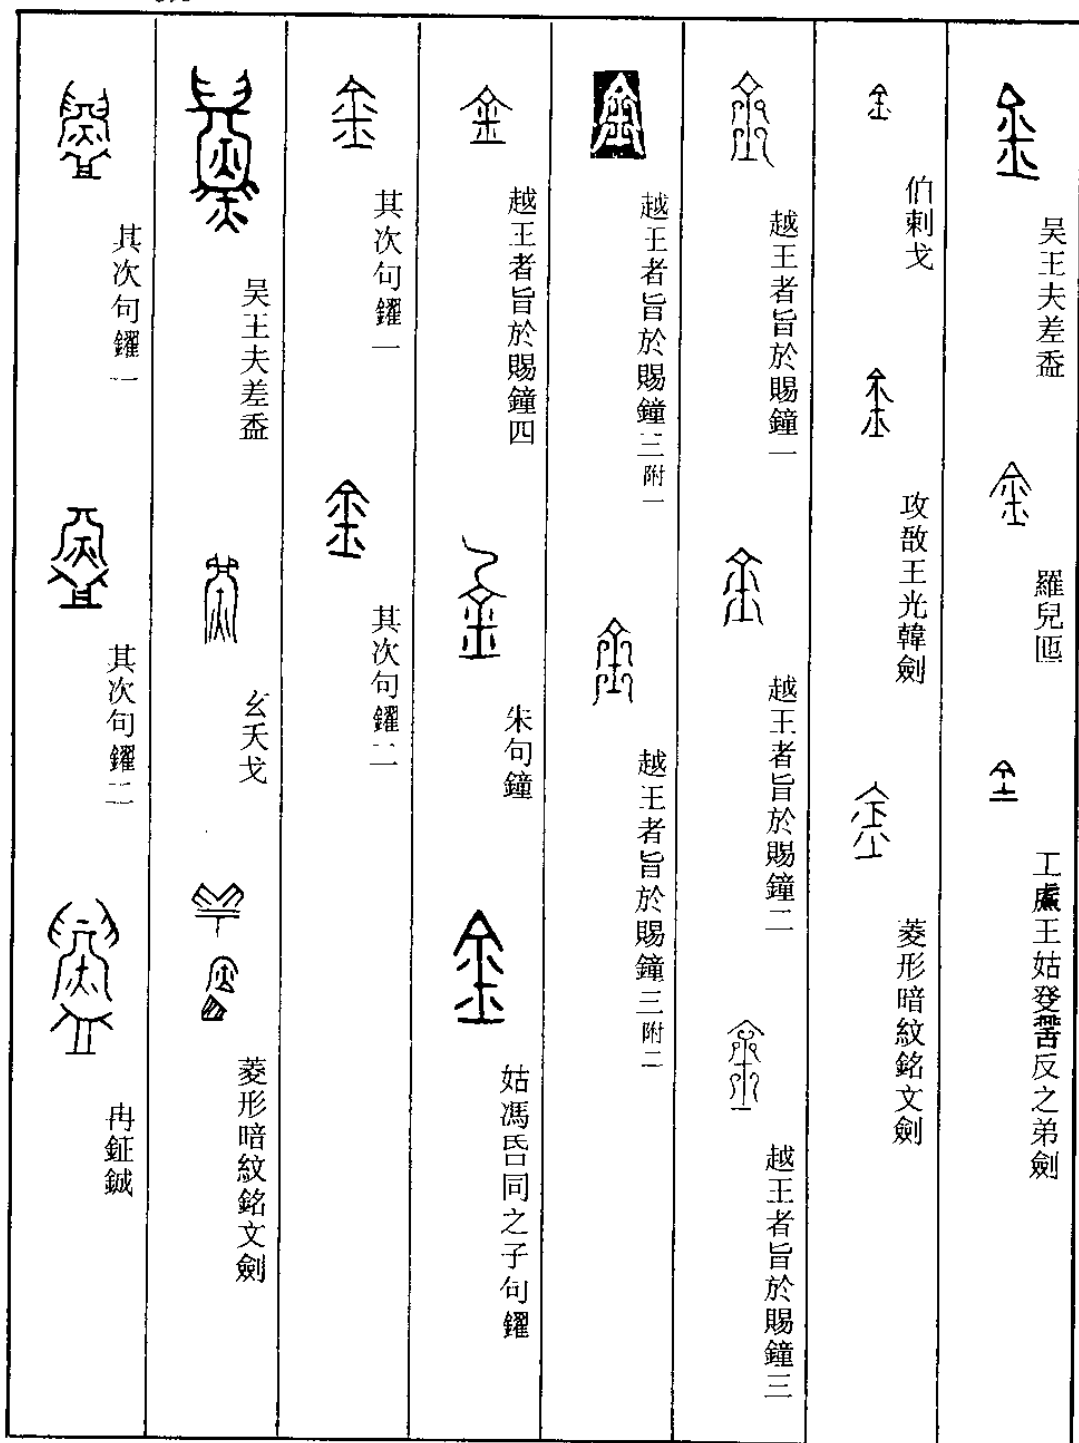 吴王夫差盉
羅兒匜
工王姑癹反之弟劍
伯剌戈
攻敔王光韓劍
菱形暗紋銘文劍
越王者旨於賜鐘一
越王者旨於賜鐘二
越王者旨於賜鐘三
越王者旨於賜鐘三附一
越王者旨於賜鐘三附二
越王者旨於賜鐘四
朱句鐘
姑馮昏同之子句鑃
其次句鑃一
其次句鑃二
吴王夫差盉
玄夭戈
菱形暗紋銘文劍
其次句鑃一
其次句鑃二
冉鉦鋮